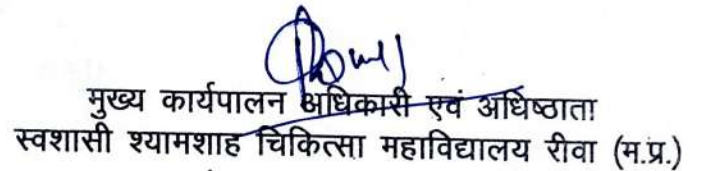 मुख्य कार्यपालन अधिकारी एवं अधिष्ठाता
स्वशासी श्यामशाह चिकित्सा महाविद्यालय रीवा (म.प्र.)